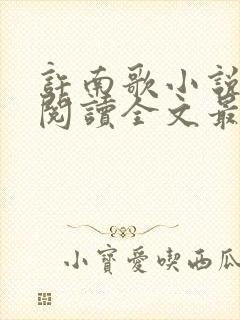 許南歌小說
閱讀全文最
小寶愛喫西瓜